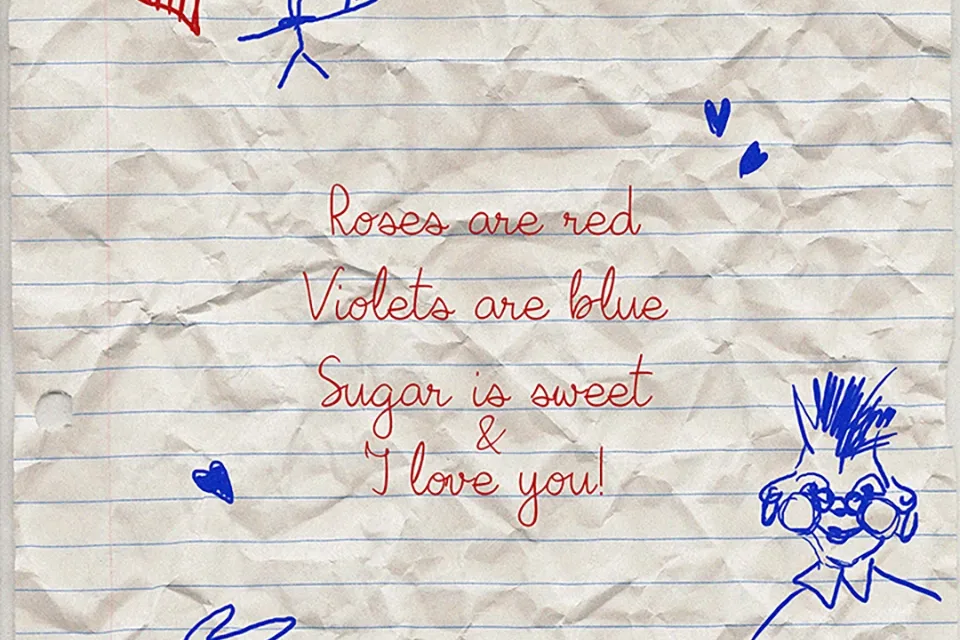 Roses are red
Violets are blue
Sugar is sweet
&
I love you!